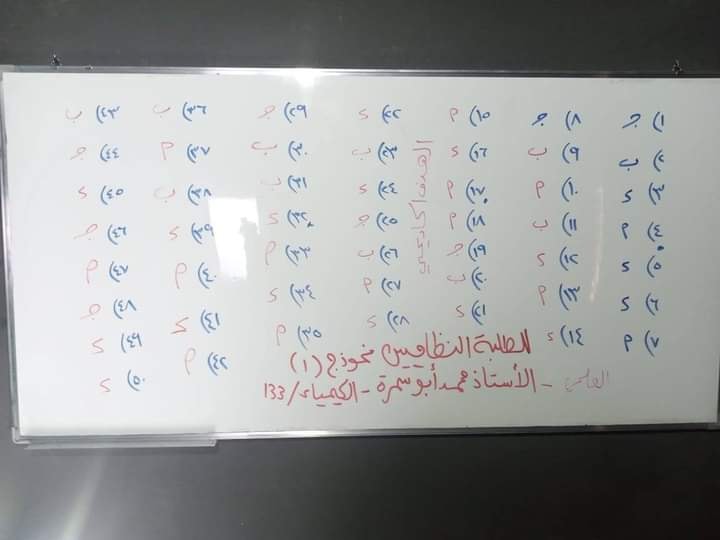 ١) ج
٢) ب
٣) د
٤) أ
٥) د
٦) د
٧) أ
٨) ج
٩) ب
١٠) أ
١١) ب
١٢) د
١٣) أ
١٤) د
١٥) أ
١٦) د
١٧) أ
١٨) أ
١٩) ج
٢٠) ب
٢١) د
الهدف أكاديمي
٢٢) د
٢٣) ب
٢٤) د
٢٥) ج
٢٦) ب
٢٧) أ
٢٨) د
٢٩) ج
٣٠) ب
٣١) ب
٣٢) د
٣٣) أ
٣٤) د
٣٥) أ
٣٦) ب
٣٧) أ
٣٨) ب
٣٩) د
٤٠) أ
٤١) د
٤٢) أ
٤٣) ب
٤٤) ج
٤٥) د
٤٦) ج
٤٧) أ
٤٨) ج
٤٩) د
٥٠) د
للطلبة النظاميين نموذج (١)
العلمي - الأستاذ محمد أبو سمرة - الكيمياء / 133